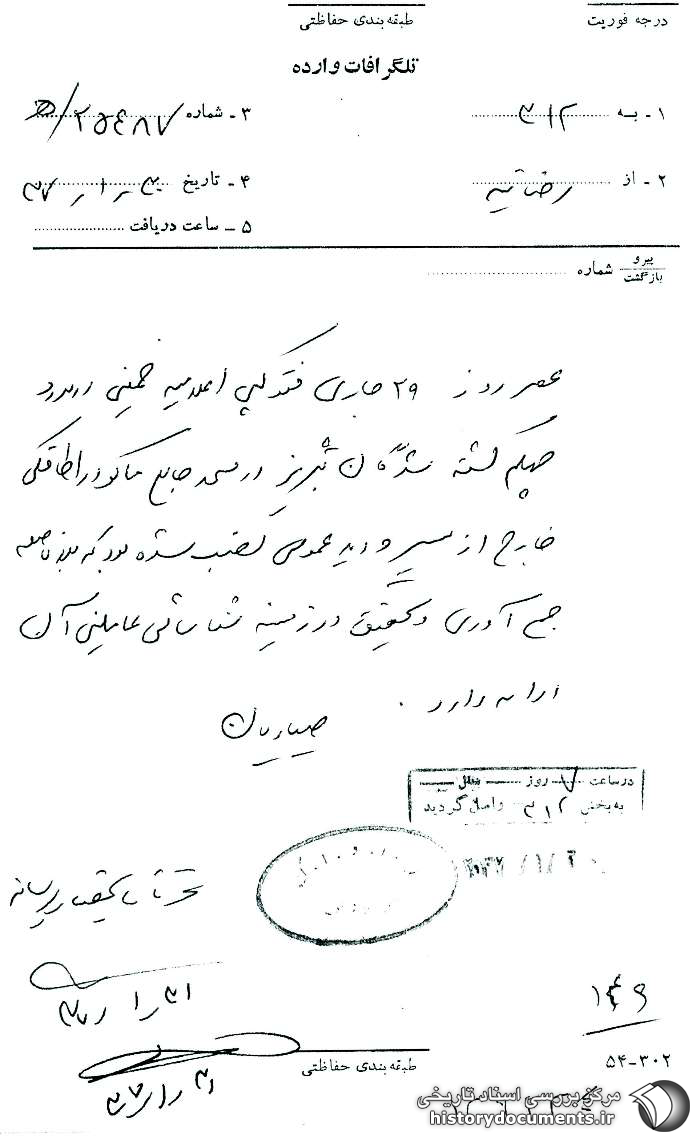 درجه فوریت
طبقه‌بندی حفاظتی
تلگرافات وارده
۱ - به ۳۱۲
۳ - شماره ۲۵۴۸۷/ه
۲ - از رضائیه
۴ - تاریخ ۳۰ر۱ر۳۷
۵ - ساعت دریافت
پیرو
بازگشت
شماره
عصر روز ۲۹ جاری فتوکپی اعلامیه خمینی در مورد
چهلم کشته شدگان تبریز در مسجد جامع ماکو در اطاقکی
خارج از مسیر و دید عمومی نصب شده بود که بلافاصله
جمع آوری و تحقیق در زمینه شناسائی عاملین آن
ادامه دارد .
صیادیان
در ساعت ۷ روز
به‌بخش ۳۱۲ واصل گردید
۱۴۹
۳۱ر۱ر۳۷
۵۴-۳۰۲
طبقه‌بندی حفاظتی
مرکز بررسی اسناد تاریخی
historydocuments.ir